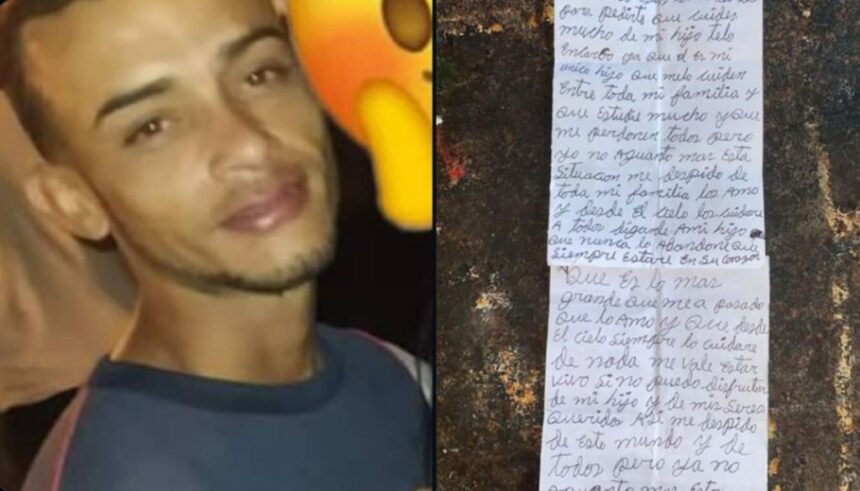 para pedirte que cuides
mucho de mi hijo telo
Encargo ya que el Es mi
unico hijo que melo cuiden
Entre toda mi familia y
que Estudie mucho y que
me perdonen todos pero
yo no Aguanto mas Esta
Situacion me despido de
toda mi familia los Amo
y desde El cielo los cuidare
A todos digande Ami hijo
que nunca lo Abandone que
Siempre Estare En Su Corazon
Que Es lo mas
grande que me a pasado
que lo Amo y que desde
El cielo siempre lo cuidare
de nada me vale Estar
vivo si no puedo disfrutar
de mi hijo y de mis Seres
queridos Asi me despido
de Este mundo y de
todos pero ya no
aguanto mas Esta